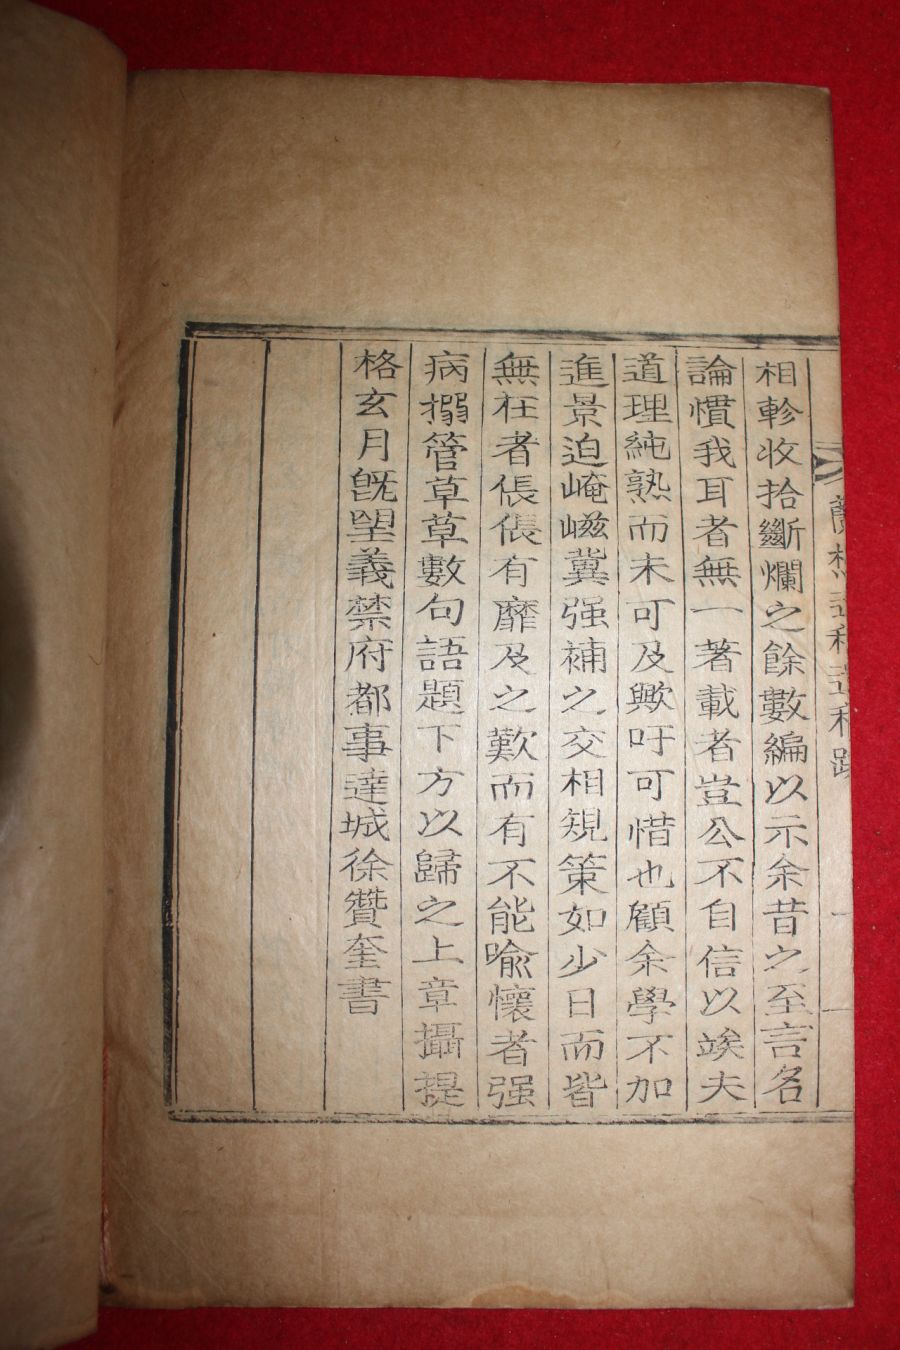 相軫收拾斷爛之餘數編以示余昔之至言名
論慣我耳者無一著載者豈公不自信以竢夫
道理純熟而未可及歟吁可惜也顧余學不加
進景迫崦嵫冀强補之交相規策如少日而皆
無在者倀倀有靡及之歎而有不能喩懷者强
病搦管草草數句語題下方以歸之上章攝提
格玄月旣望義禁府都事達城徐贊奎書